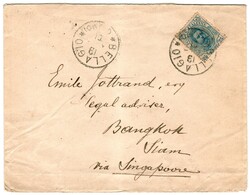 BELLAGIO
BELLAGIO
Emile Jottrand, esq
legal adviser,
Bangkok
Siam
via Singapoore